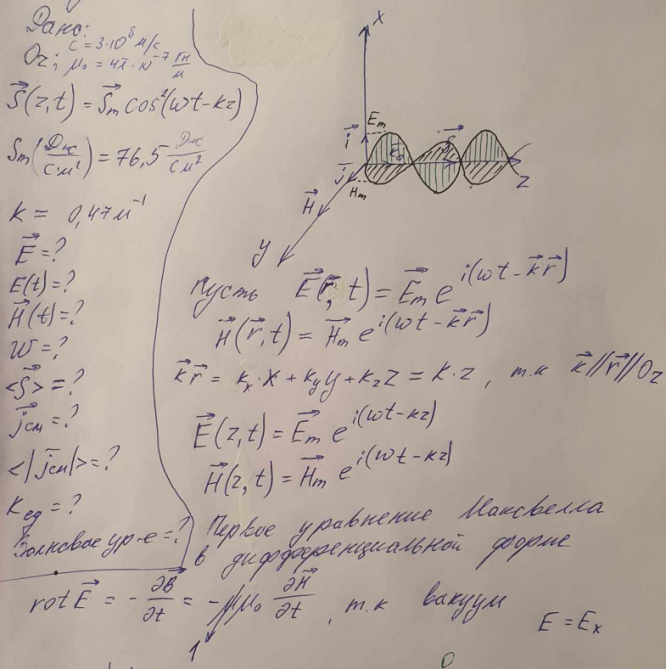 Дано:
c = 3·10⁸ м/с
Oz; μ₀ = 4π·10⁻⁷ Гн/м
S⃗(z,t) = S⃗m cos²(ωt-kz)
Sm(Дж/см²) = 76,5 Дж/см²
k = 0,47м⁻¹
E⃗ = ?
E(t) = ?
H⃗(t) = ?
W = ?
<S⃗> = ?
j⃗см = ?
<|j⃗см|> = ?
Kед = ?
Волновое ур-е = ?
X
Em
i⃗
S⃗
j⃗
Hm
Z
H⃗
y
Пусть E⃗(r⃗, t) = E⃗m e^i(ωt - k⃗r⃗)
H⃗(r⃗, t) = H⃗m e^i(ωt - k⃗r⃗)
k⃗r⃗ = kx·x + kyy + kzz = k·z, т.к k⃗//r⃗//Oz
E⃗(z,t) = E⃗m e^i(ωt-kz)
H⃗(z,t) = H⃗m e^i(ωt-kz)
Первое уравнение Максвелла
в дифференциальной форме
rot E⃗ = - ∂B⃗/∂t = - μμ₀ ∂H⃗/∂t, т.к вакуум
1
E = Ex